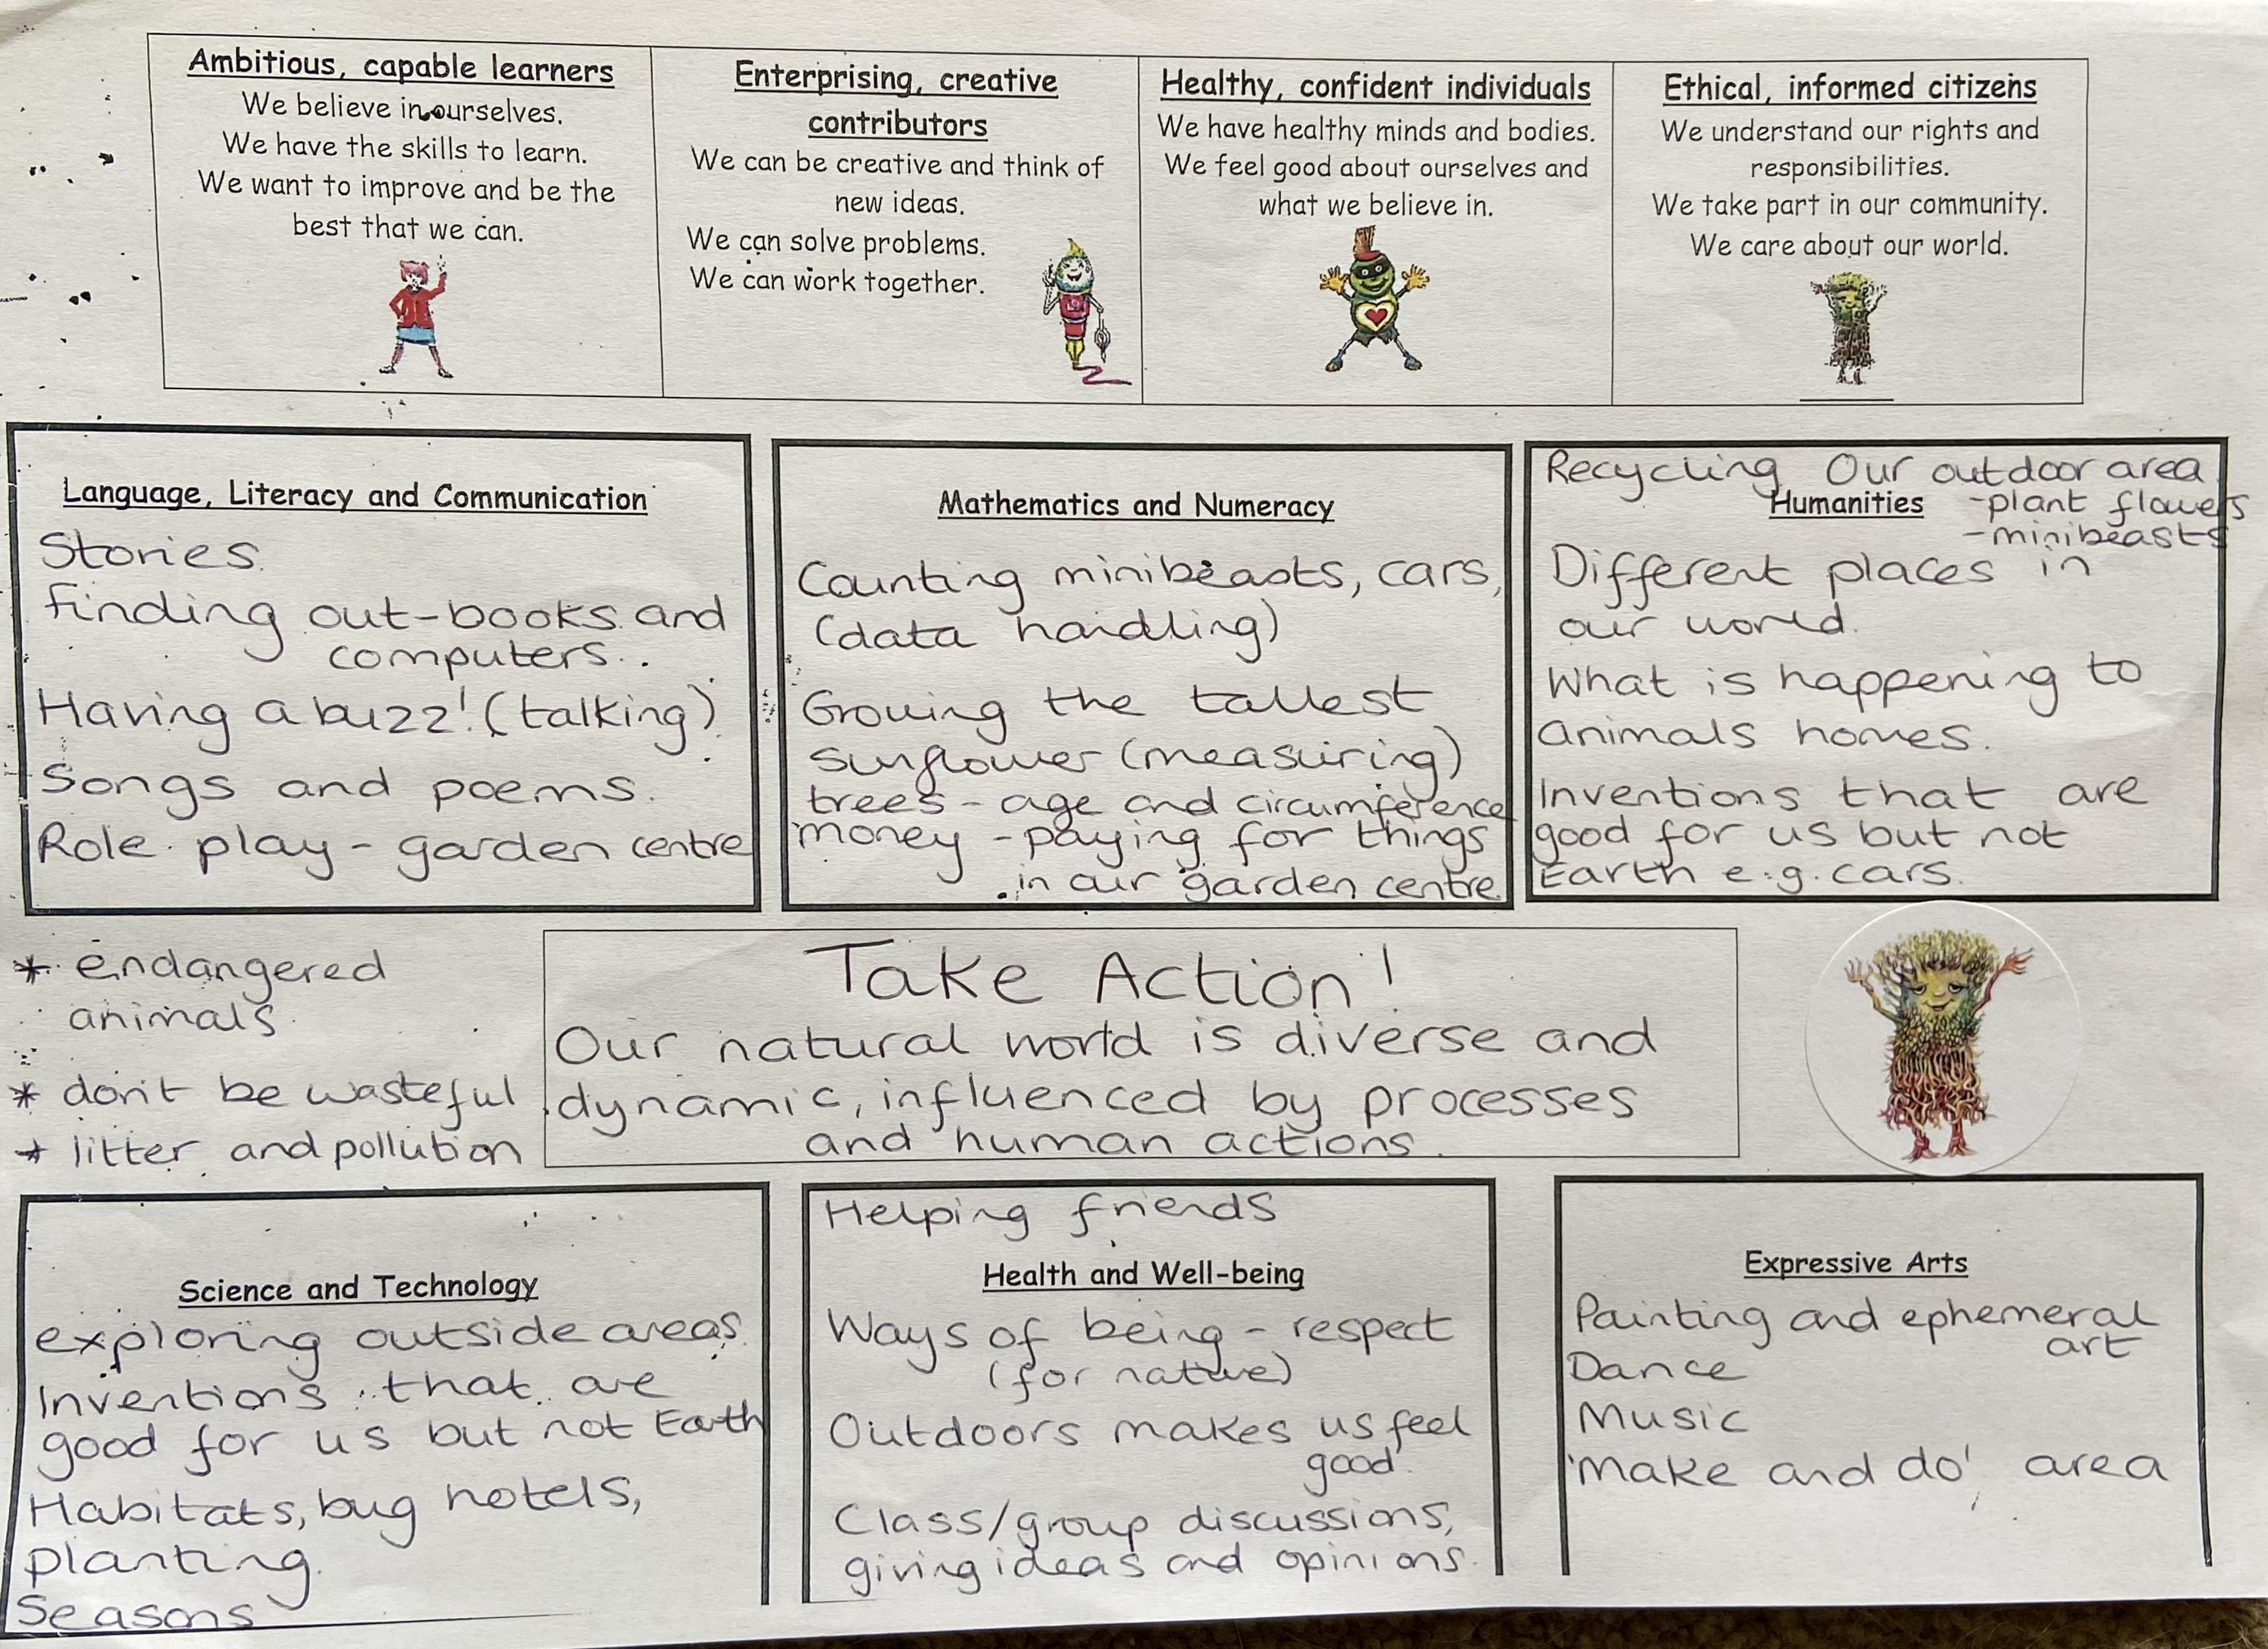 Ambitious, capable learners
We believe in ourselves.
We have the skills to learn.
We want to improve and be the
best that we can.
Enterprising, creative
contributors
We can be creative and think of
new ideas.
We can solve problems.
We can work together.
Healthy, confident individuals
We have healthy minds and bodies.
We feel good about ourselves and
what we believe in.
Ethical, informed citizens
We understand our rights and
responsibilities.
We take part in our community.
We care about our world.
Language, Literacy and Communication
Stories.
finding out-books and
computers..
Having a buzz! (talking)
Songs and poems.
Role play - garden centre
Mathematics and Numeracy
Counting minibeasts, cars,
(data handling)
Growing the tallest
sunflower (measuring)
trees - age and circumference
money - paying for things
in our garden centre
Recycling Our outdoor area
Humanities -plant flowers
-minibeasts
Different places in
our world.
What is happening to
animals homes.
Inventions that are
good for us but not
Earth e.g. cars.
* endangered
animals
* don't be wasteful
* litter and pollution
Take Action!
Our natural world is diverse and
dynamic, influenced by processes
and human actions.
Science and Technology
exploring outside areas
Inventions that are
good for us but not Earth
Habitats, bug hotels,
planting.
Seasons
Helping friends
Health and Well-being
Ways of being - respect
(for nature)
Outdoors makes us feel
good.
Class/group discussions,
giving ideas and opinions.
Expressive Arts
Painting and ephemeral
art
Dance
Music
'Make and do' area